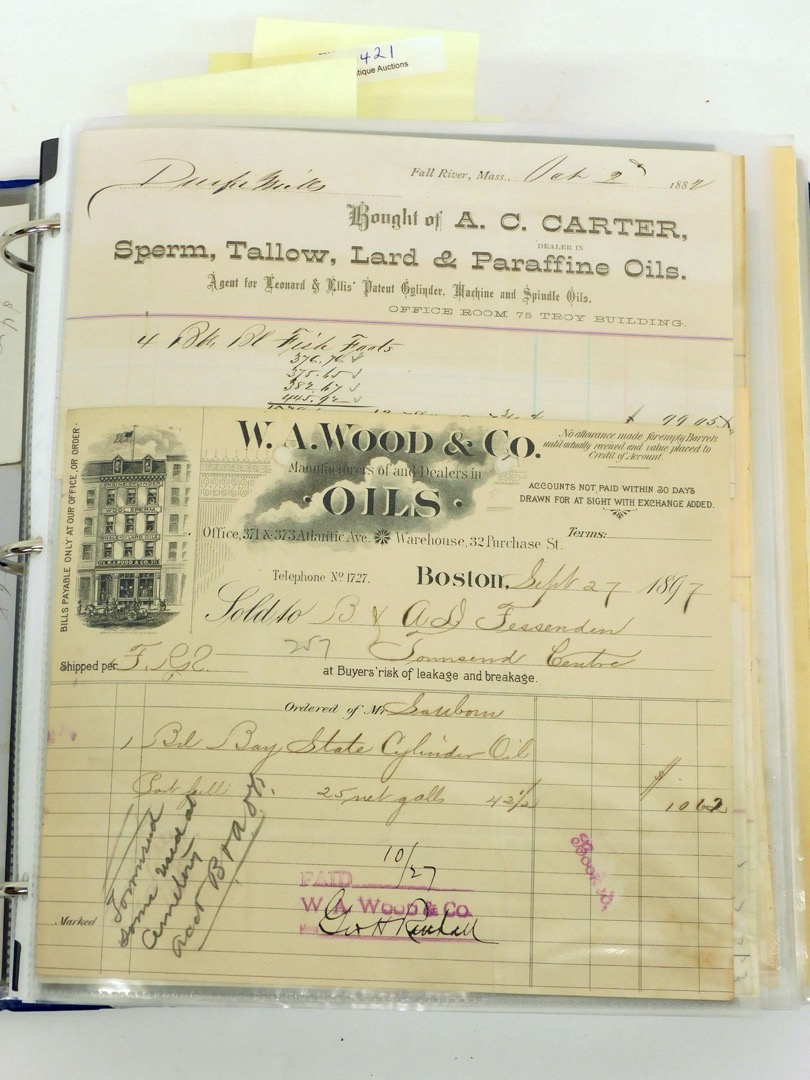 421
tique Auctions
Fall River, Mass., Oct 2d 1882
Bought of A. C. CARTER,
DEALER IN
Sperm, Tallow, Lard & Paraffine Oils.
Agent for Leonard & Ellis' Patent Cylinder, Machine and Spindle Oils.
OFFICE ROOM 75 TROY BUILDING.
4 Bbls Bl Fish Foots
376.
375.
382.67
445.92
$ 99.05
BILLS PAYABLE ONLY AT OUR OFFICE, OR ORDER.
WOOL SPERM
W. A. WOOD & CO.
W. A. WOOD & Co.
Manufacturers of and Dealers in
·OILS·
Office, 371 & 373 Atlantic Ave. Warehouse, 32 Purchase St.
No allowance made for empty Barrels
until actually received and value placed to
Credit of Account.
ACCOUNTS NOT PAID WITHIN 30 DAYS
DRAWN FOR AT SIGHT WITH EXCHANGE ADDED.
Terms:
Telephone No 1727.
Boston, Sept 27 1897
Sold to B & AD Fessenden
257 Townsend Centre
Shipped per F.
at Buyers' risk of leakage and breakage.
Ordered of Mr Sanborn
1 Bbl Bay State Cylinder Oil
Part full 25 net galls 42½ $ 10 62
Townsend
some used at
Cemetery
acct B & A D F
10/27
PAID
W. A. WOOD & Co.
Geo H Randall
Book
Marked